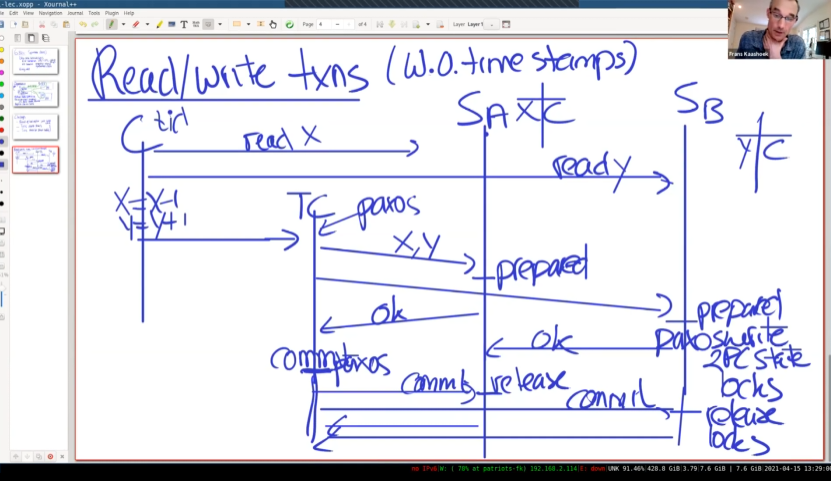 -lec.xopp - Xournal++
Navigation Journal Tools Plugin Help
Page 4 of 4 Layer Layer 1
Frans Kaashoek
Read/write txns (W.O. time stamps)
C tid
SA X C
SB
Y C
read X
read y
X=X-1
Y=Y+1
TC paxos
X,Y
prepared
prepared
ok
ok
paxos write
2PC state
locks
commit paxos
commit release
commit
release
locks
no IPv6 W: ( 78% at patriots-fk) 192.168.2.114 E: down UNK 91.46% 428.8 GiB 3.79 7.6 GiB | 7.6 GiB 2021-04-15 13:29:0